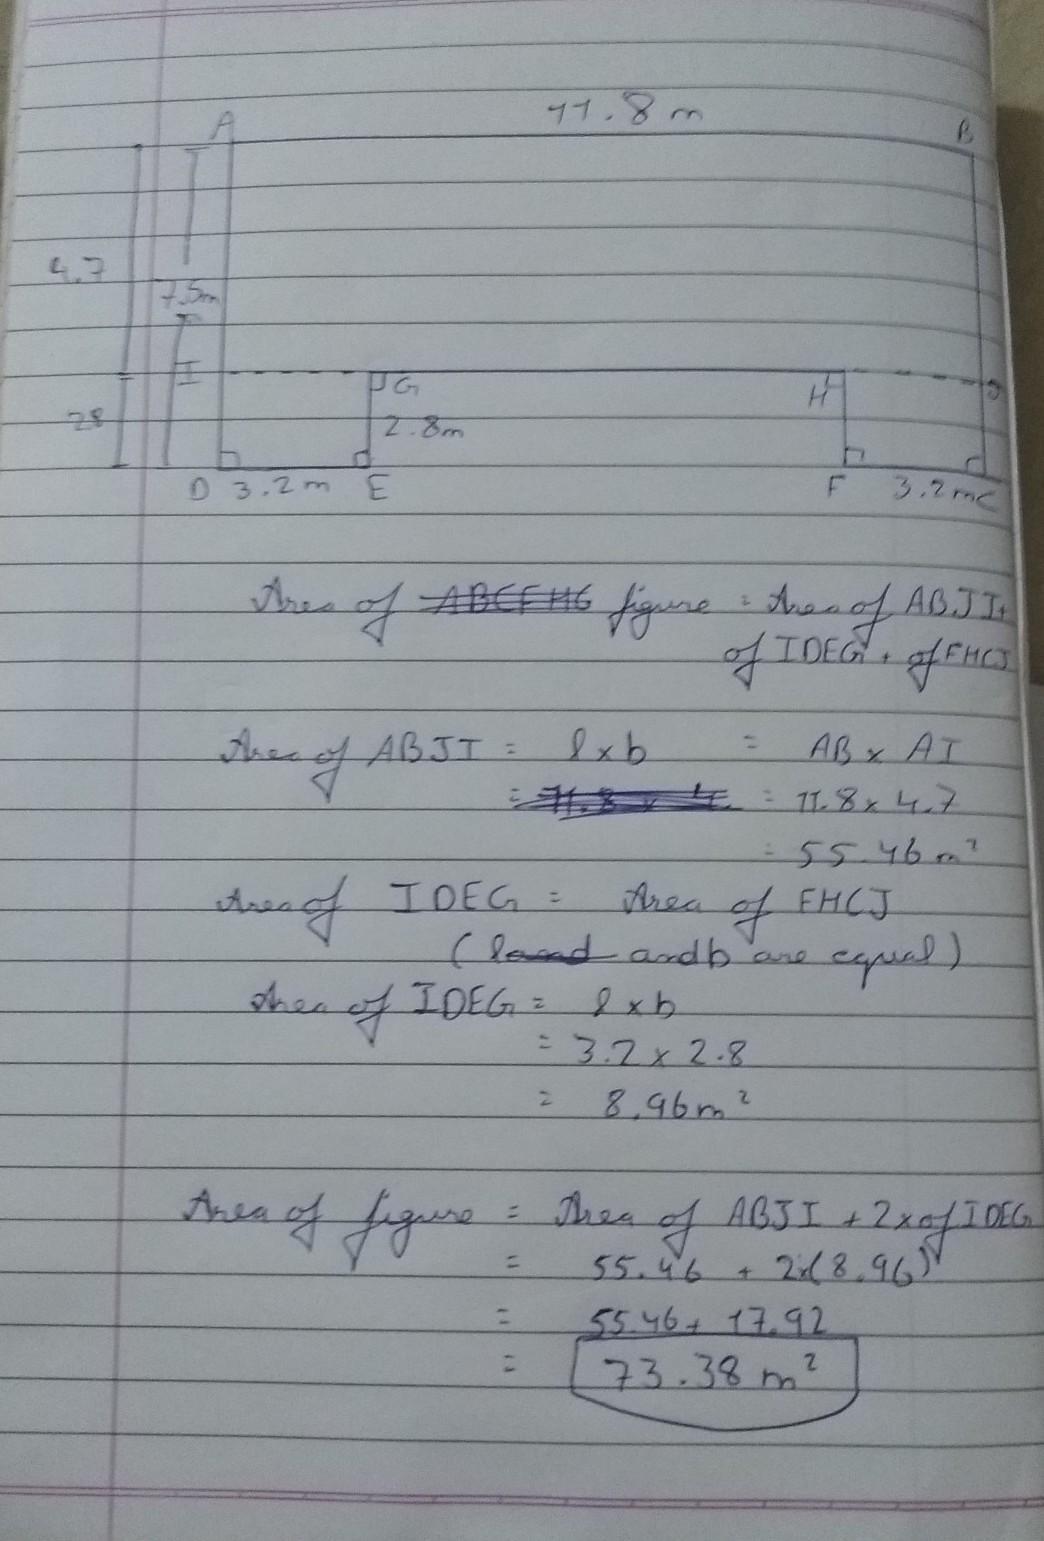 11.8 m
A B
4.7
7.5m
I G H J
28 2.8m
D 3.2m E F 3.2m C
Area of ABCFHG figure = Area of ABJI+
of IDEG + of FHCJ
Area of ABJI = l x b = AB x AI
= 11.8 x 4. = 11.8 x 4.7
= 55.46 m²
Area of IDEG = Area of FHCJ
( and b are equal)
Area of IDEG = l x b
= 3.2 x 2.8
= 8.96m²
Area of figure = Area of ABJI + 2x of IDEG
= 55.46 + 2x(8.96)
= 55.46+ 17.92
= 73.38 m²